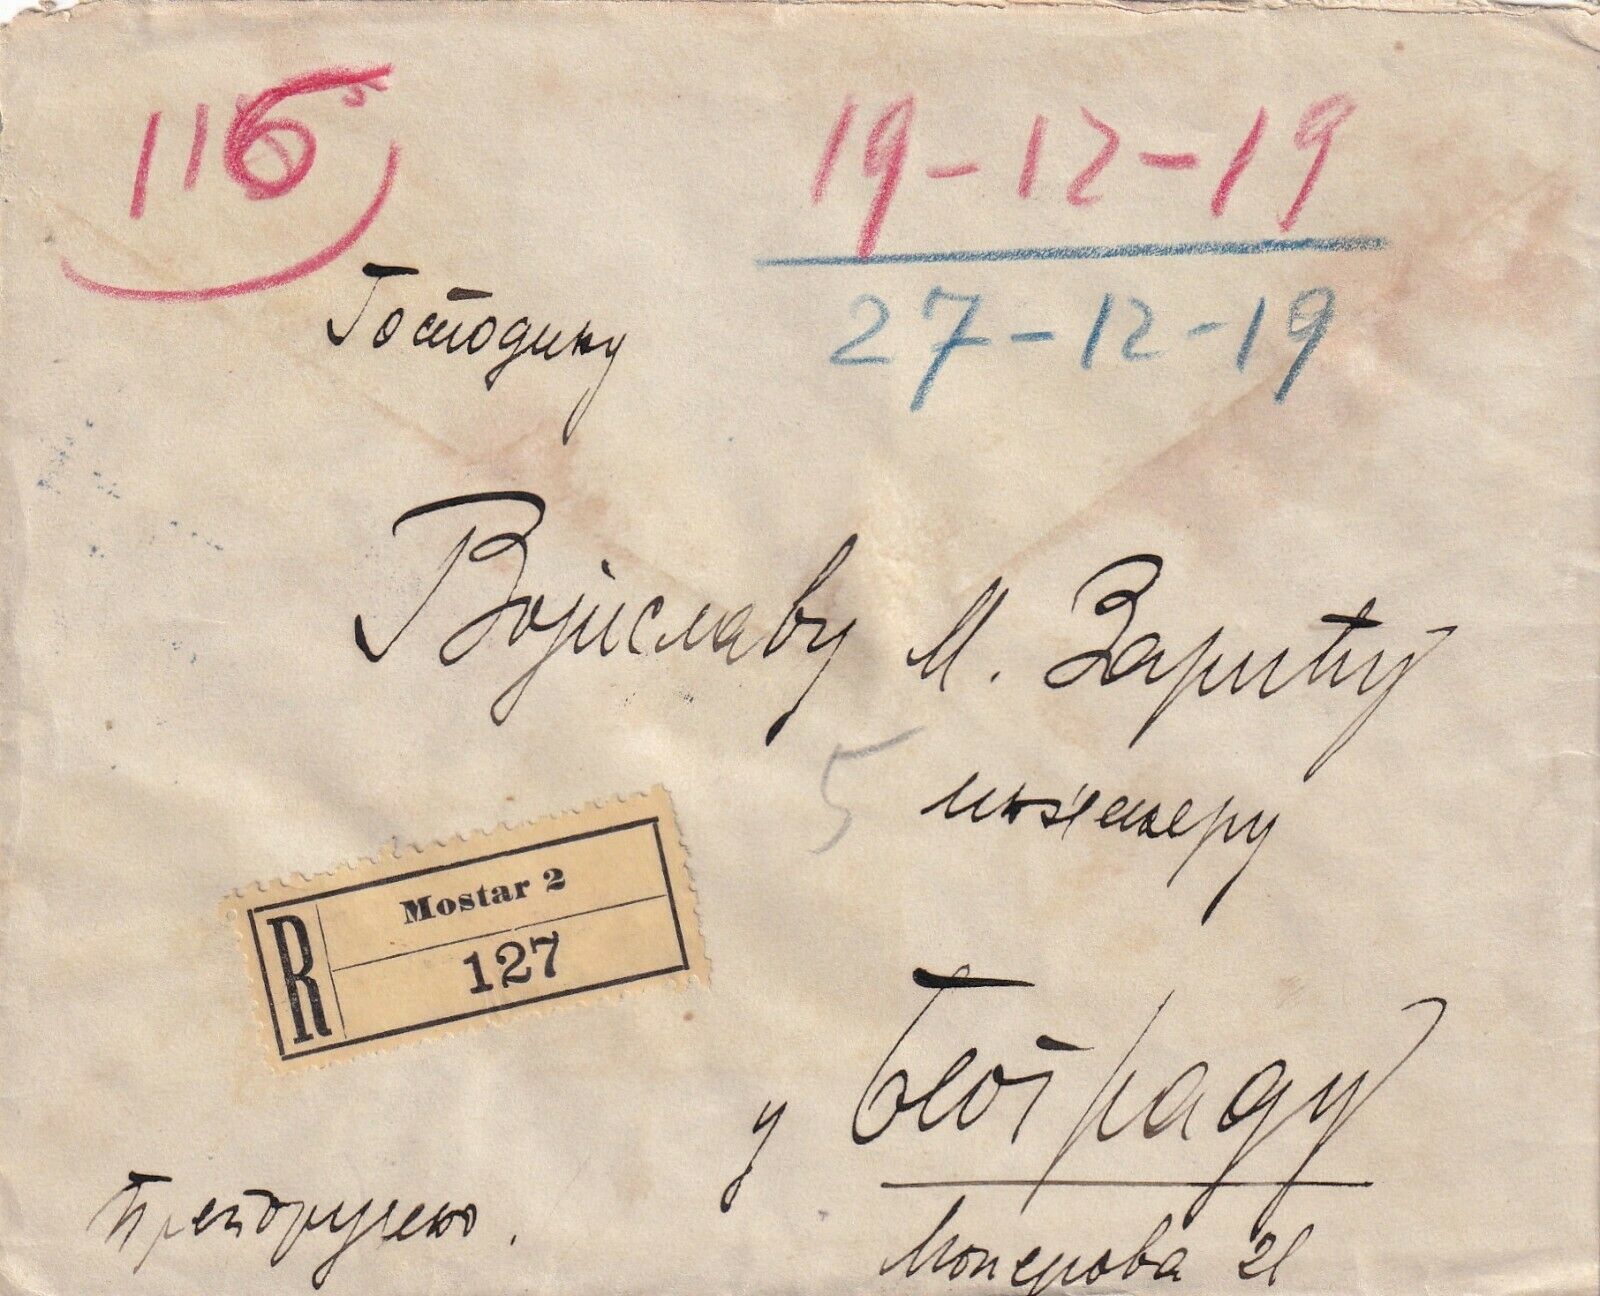 116
19-12-19
27-12-19
Господину
Војиславу М. Зарићу
5
инжењеру
R
Mostar 2
127
у Београду
Препоручено.
21